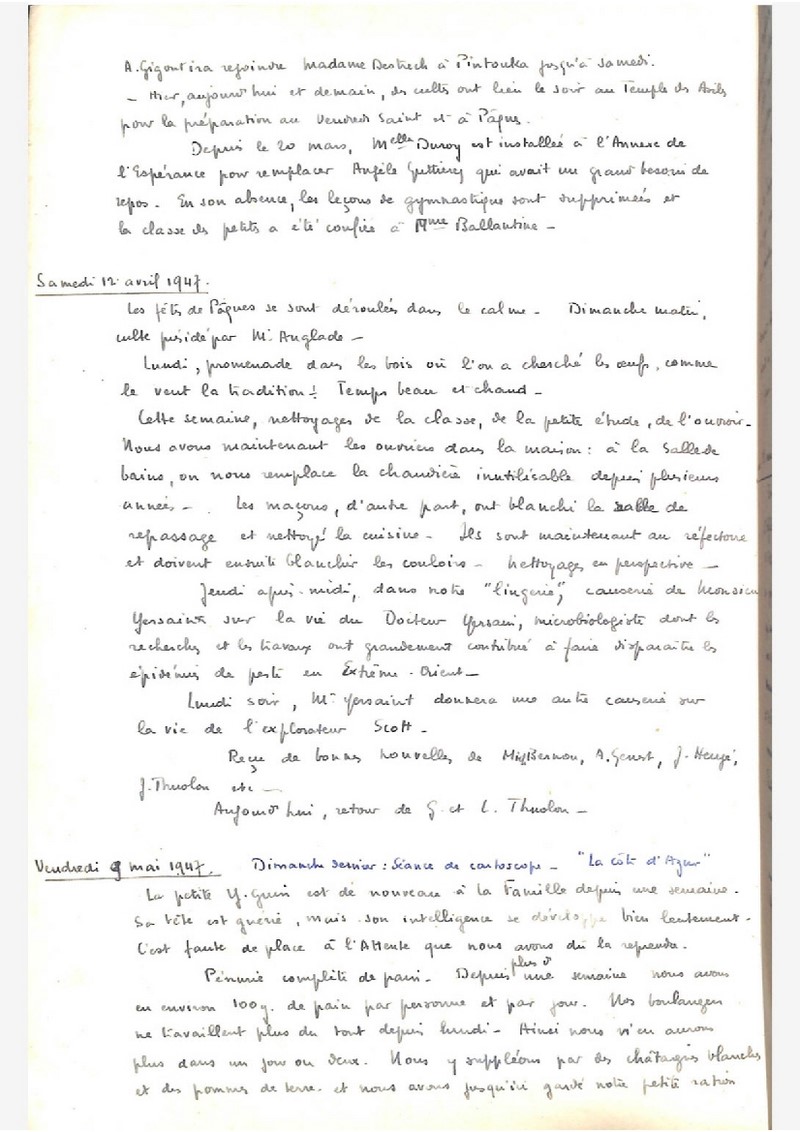 A. Gigout ira rejoindre Madame Destrech à Pintouka jusqu'à samedi.
_ Hier, aujourd'hui et demain, des cultes ont lieu le soir au Temple des Asiles
pour la préparation au Vendredi Saint et à Pâques.
Depuis le 20 mars, Melle Duroy est installée à l'Annexe de
l'Espérance pour remplacer Angèle qui avait un grand besoin de
repos. En son absence, les leçons de gymnastique sont supprimées et
la classe des petits a été confiée à Mme Ballantine _
Samedi 12 avril 1947.
Les fêtes de Pâques se sont déroulées dans le calme _ Dimanche matin,
culte présidé par Mr Anglade _
Lundi, promenade dans les bois où l'on a cherché les œufs, comme
le veut la tradition! Temps beau et chaud _
Cette semaine, nettoyages de la classe, de la petite étude, de l'ouvroir _
Nous avons maintenant les ouvriers dans la maison : à la Salle de
bains, on nous remplace la chaudière inutilisable depuis plusieurs
années _ Les maçons, d'autre part, ont blanchi la salle de
repassage et nettoyé la cuisine _ Ils sont maintenant au réfectoire
et doivent ensuite blanchir les couloirs _ Nettoyages en perspective _
Jeudi après-midi, dans notre "lingerie", causerie de Monsieur
Yersaint sur la vie du Docteur Yersin, microbiologiste dont les
recherches et les travaux ont grandement contribué à faire disparaître les
épidémies de peste en Extrême-Orient _
Lundi soir, Mr Yersaint donnera une autre causerie sur
la vie de l'explorateur Scott _
Reçu de bonnes nouvelles de Miss Bernon, A. Genest, J. Heugé,
J. Thuolon etc _
Aujourd'hui, retour de G. et L. Thuolon _
Vendredi 9 mai 1947. Dimanche dernier : Séance de cartoscope _ "La côte d'Azur"
La petite Y. Guin est de nouveau à la Famille depuis une semaine.
Sa tête est guérie, mais son intelligence se développe bien lentement.
C'est faute de place à l'Attente que nous avons dû la reprendre.
Pénurie complète de pain _ Depuis plus d'une semaine nous avons
eu environ 100 g. de pain par personne et par jour. Nos boulangers
ne travaillent plus du tout depuis lundi _ Ainsi nous n'en aurons
plus dans un jour ou deux. Nous y suppléons par des châtaignes blanches
et des pommes de terre. et nous avons jusqu'ici gardé notre petite ration